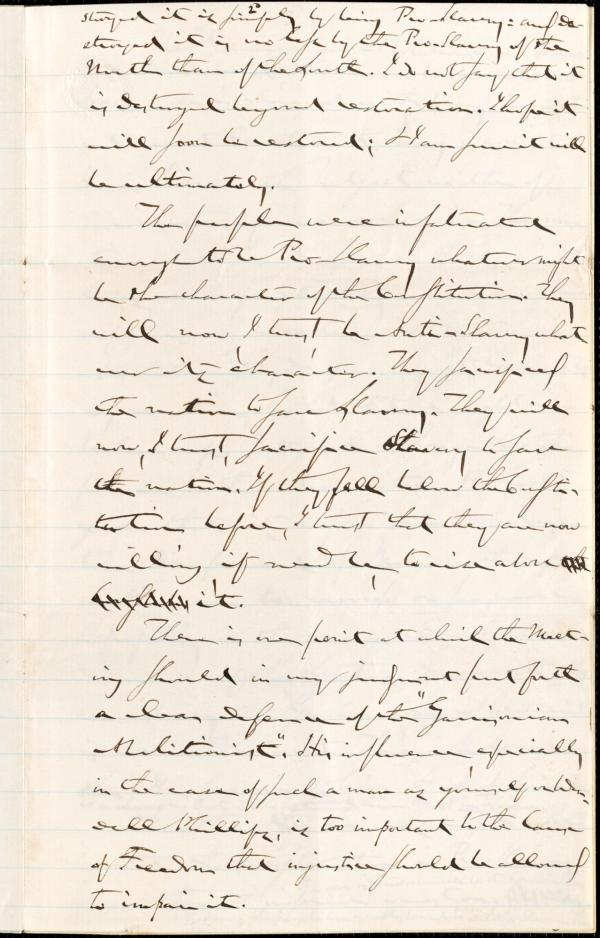 2
stroyed it is simply by being Pro-Slavery: and de-
stroyed it is no less by the Pro-Slavery of the
North than of the South. I do not say that it
is destroyed beyond restoration. I hope it
will soon be restored; & I am sure it will
be ultimately.
The people were infatuated
enough to be Pro-Slavery whatever might
be the character of the Constitution. They
will now I trust be Anti-Slavery what
ever its character. They sacrificed
the nation to save Slavery. They will
now, I trust, sacrifice Slavery to save
the nation. If they fell below the Consti-
tution before, I trust that they are now
willing, if need be, to rise above
it.
There is one point at which the Meet-
ing should in my judgment put forth
a clear defence of the "Garrisonian
Abolitionist". His influence, especially
in the case of such a man as yourself or Wen-
dell Phillips, is too important to the Cause
of Freedom that injustice should be allowed
to impair it.